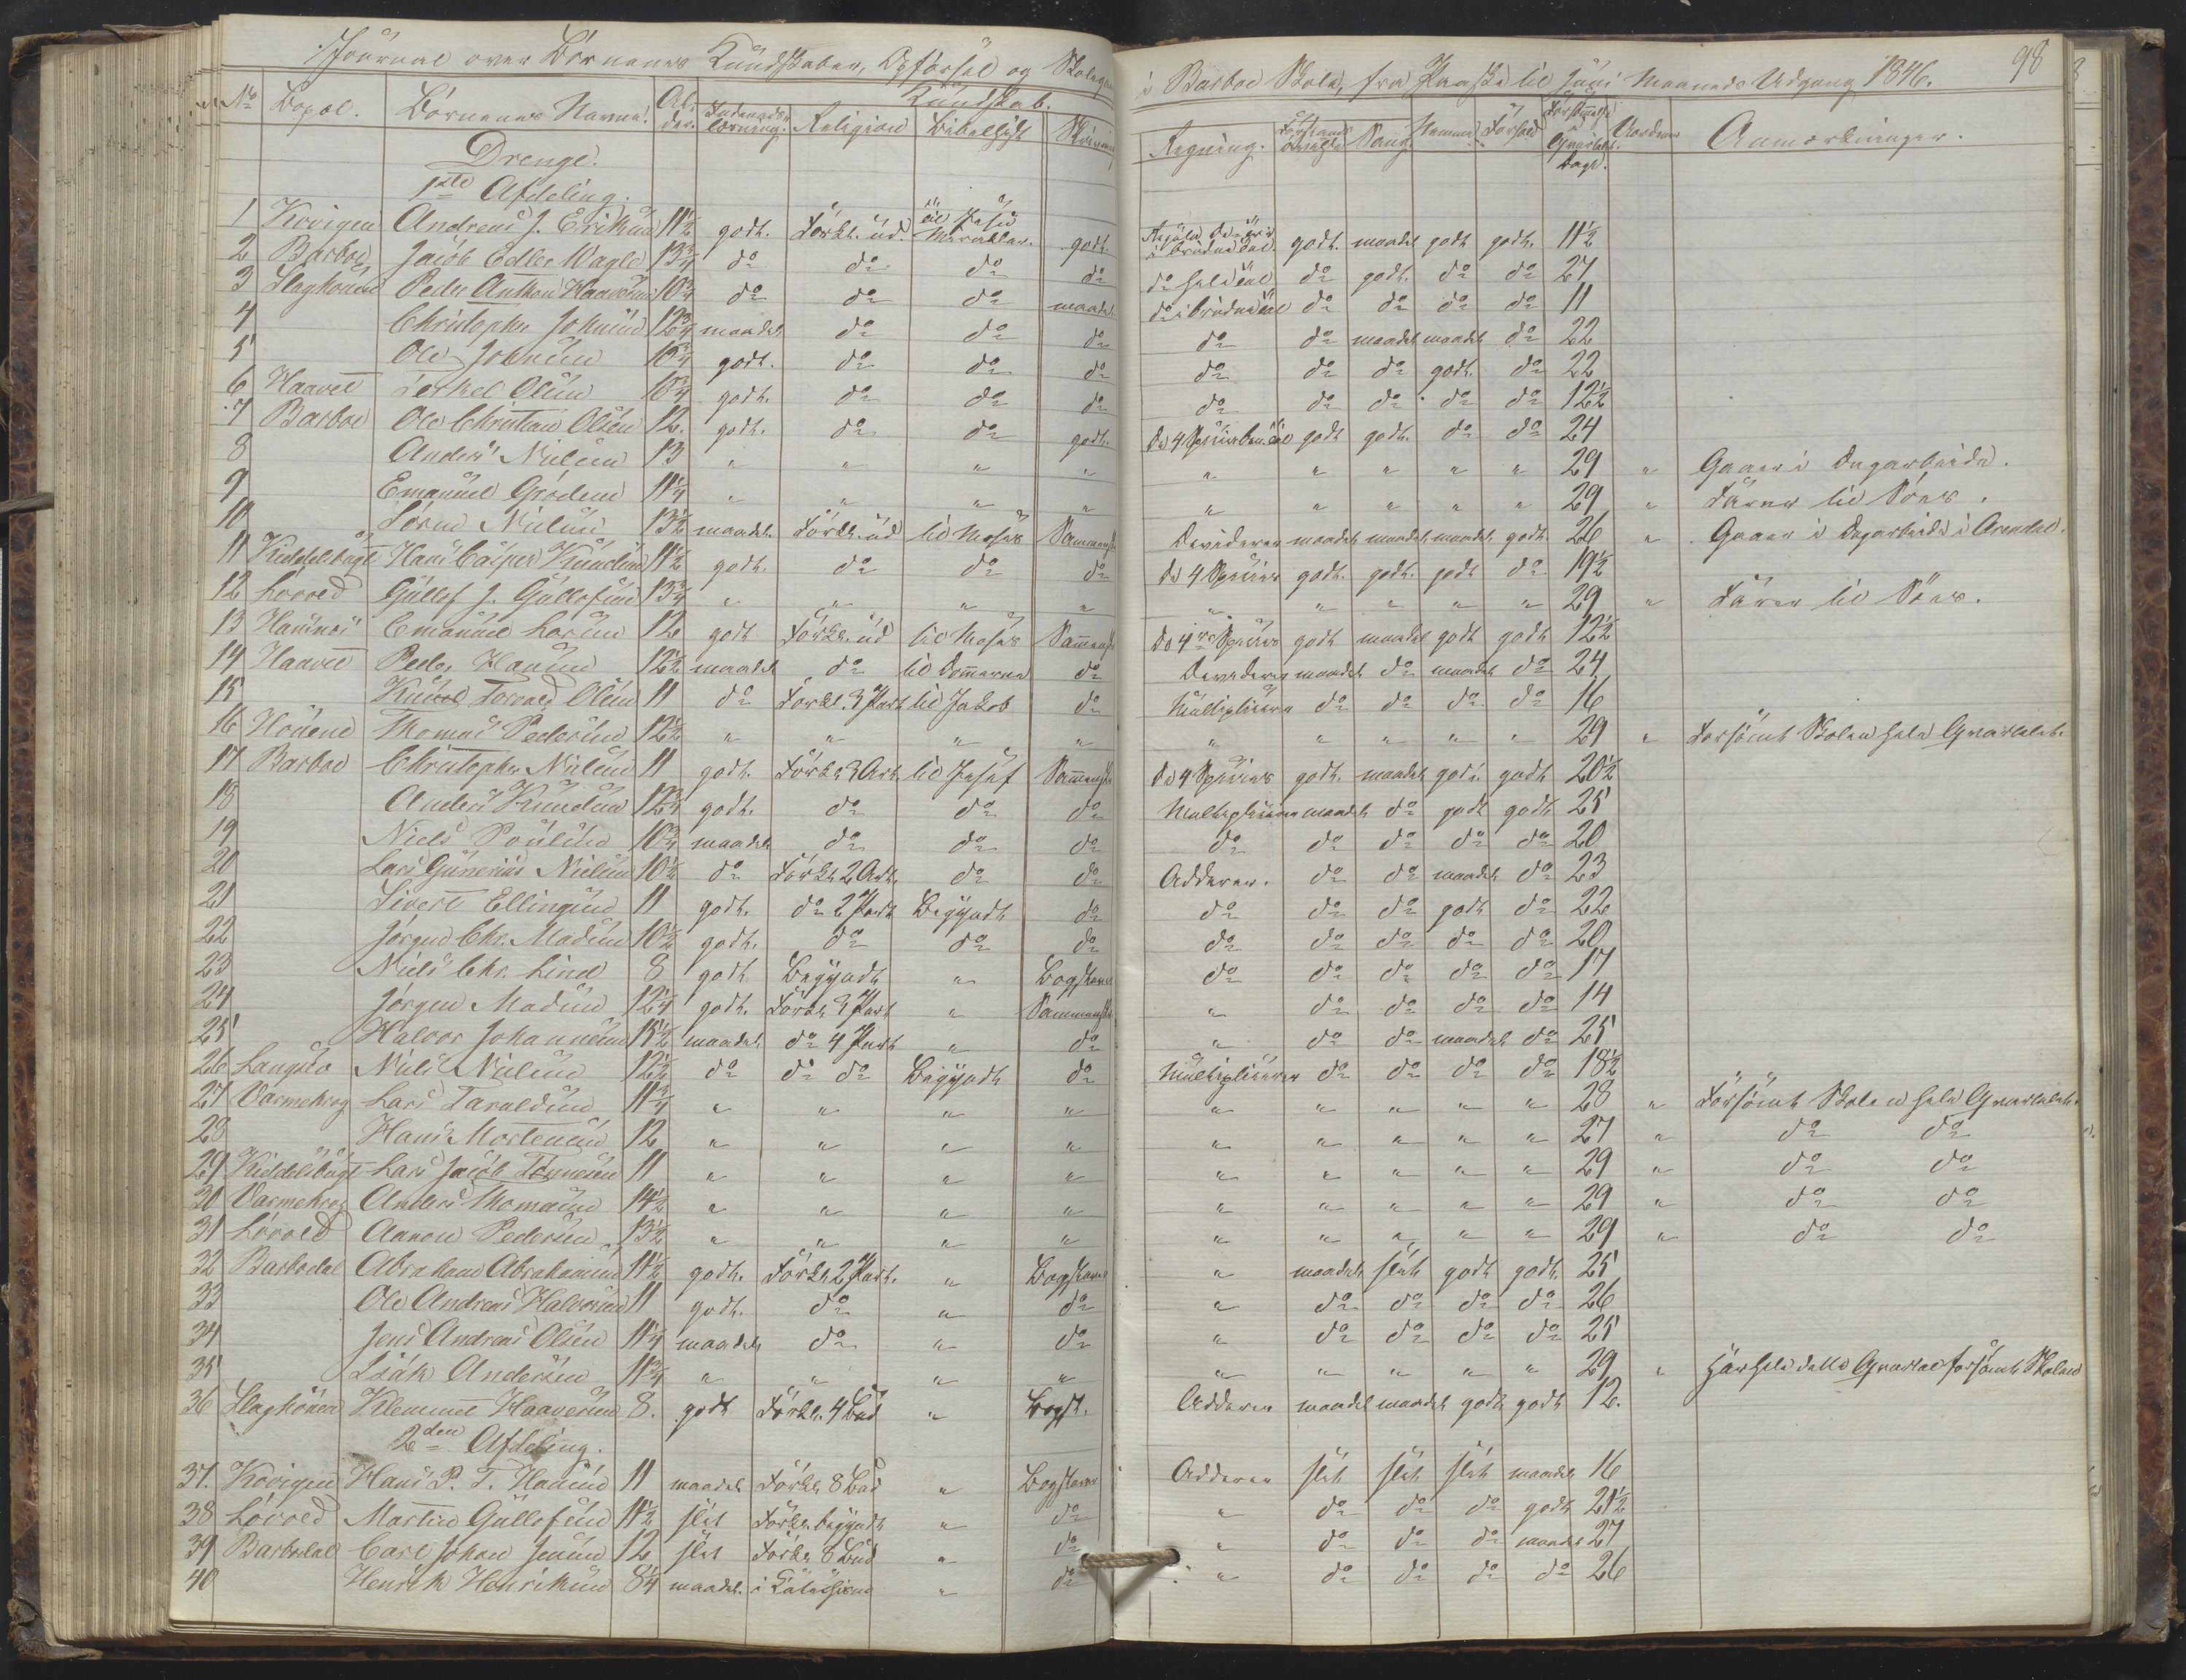 Journal over Börnenes Kundskaber, Opförsel og Skolegang i Barboe Skole, fra Paaske til Juni Maaneds Udgang 1846. 98
No Bopæl. Börnenes Navne. Alder. Indenadslæsning. Kundskab. Religion Bibelhist. Skrivning Regning. Forstandsövelse Sang. Nemme Forhold Forsömte Qvartalet. Dage. Anmærkninger.
Drenge.
1ste Afdeling.
1 Kovigen Andreas J. Eriksen 11½ godt. Forkl. ud. til Jesu Mirakler. godt. i brudne Tal godt. maadel godt godt. 11½
2 Barboe Jacob Edler Wagle 13¾ do do do do do hele Tal do godt. do do 27
3 Slaghouen Peder Anthon Haavorsen 10¾ do do do maadel. do i brudne Tal do do do do 11
4 Christopher Johnsen 12¾ maadel do do do do do maadel maadel do 22
5 Ole Johnsen 10¾ godt. do do do do do do godt. do 22
6 Haavet Terkel Olsen 10¾ godt. do do do do do do do do 12½
7 Barboe Ole Christian Olsen 12. godt. do do godt. De 4 Species godt godt. do do 24
8 Anders Nielsen 13 " " " " " " " " " 29 " Gaaer i Dagarbeide.
9 Emanuel Grödem 11¼ " " " " " " " " " 29 " Farer til Söes.
10 Sören Nielsen 13½ maadel. Forkl. ud til Moses Sammens. Dividerer maadel maadel maadel godt. 26 " Gaaer i Dagarbeide i Arendal.
11 Kiddelsbugt Hans Casper Knudsen 11½ godt. do do do De 4 Species godt. godt. godt do 19½
12 Lövold Gullof J. Gullofsen 13¾ " " " " " " " " " 29 " Farer til Söes.
13 Hausnes Emanuel Larsen 12 godt Forkl. ud til Moses Sammens. De 4re Species godt maadel godt godt 12½
14 Haavet Peder Hansen 12½ maadel do til Dommerne do Dividerer maadel do maadel do 24
15 Knud Torvald Olsen 11 do Forkl. 3 Part til Jakob do Multiplicerer do do do do 16
16 Thomas Pedersen 12½ " " " " " " " " " 29 " Forsömt Skolen hele Qvartalet.
17 Barboe Christopher Nielsen 11 godt. Forkl. 3 Art. til Josef Sammens. De 4 Species godt. maadel godt. godt 20½
18 Anders Knudsen 12¾ godt. do do do Multiplicerer maadel do godt godt 25
19 Niels Poulsen 10¾ maadel do do do do do do do do 20
20 Lars Gunerius Nielsen 10½ do Forkl. 2 Art. do do Adderer. do do maadel do 23
21 Sivert Ellingsen 11 godt. do 2 Part Begyndt do do do do godt do 22
22 Jörgen Chr. Madsen 10½ godt. do do do do do do do do 20
23 Niels Chr. Lind 8 godt Begyndt " Bogstaver do do do do do 17
24 Jörgen Madsen 12¼ godt. Forkl. 3 Part " Sammens. " do do do do 14
25 Halvor Johannesen 15½ maadel do 4 Part " do " do do maadel do 25
26 Langsæ Niels Nielsen 12½ do do do Begyndt do Multiplicerer do do do do 18½
27 Varmekrog Lars Taraldsen 11¾ " " " " " " " " " 28 " Forsömt Skolen hele Qvartalet.
28 Hans Mortensen 12 " " " " " " " " " 27 " do do
29 Kiddelsbugt Lars Jacob Tönnesen 11 " " " " " " " " " 29 " do do
30 Varmekrog Anders Thomasen 14½ " " " " " " " " " 29 " do do
31 Lövold Aanon Pedersen 13½ " " " " " " " " " 29 " do do
32 Barbodal Abraham Abrahamsen 11½ godt. Forkl. 2 Part. " Bogstaver " maadel slet godt godt. 25
33 Ole Andreas Halvorsen 11 godt. do " do " do do do do 26
34 Jens Andreas Olsen 11¼ maadel do " do " do do do do 25
35 Isak Andersen 11¾ " " " " " " " " " 29 " Har hele dette Qvartal forsömt Skolen
36 Slaghouen Klemmet Haaversen 8. godt Forkl. 4 Bud " Bogst. Adderer maadel maadel godt godt 12.
2den Afdeling.
37. Kovigen Hans P. T. Hansen 11 maadel Forkl. 8 Bud " Bogstaver Adderer slet slet slet maadel 16
38 Lövold Martin Gullofsen 11½ slet Forkl. begyndt " do " do do do godt 21½
39 Barbodal Carl Johan Jensen 12 slet Forkl. 8 Bud " do " do do do maadel 27
40 Henrik Henriksen 8¼ maadel. i Katechismen " do " do do do do 26